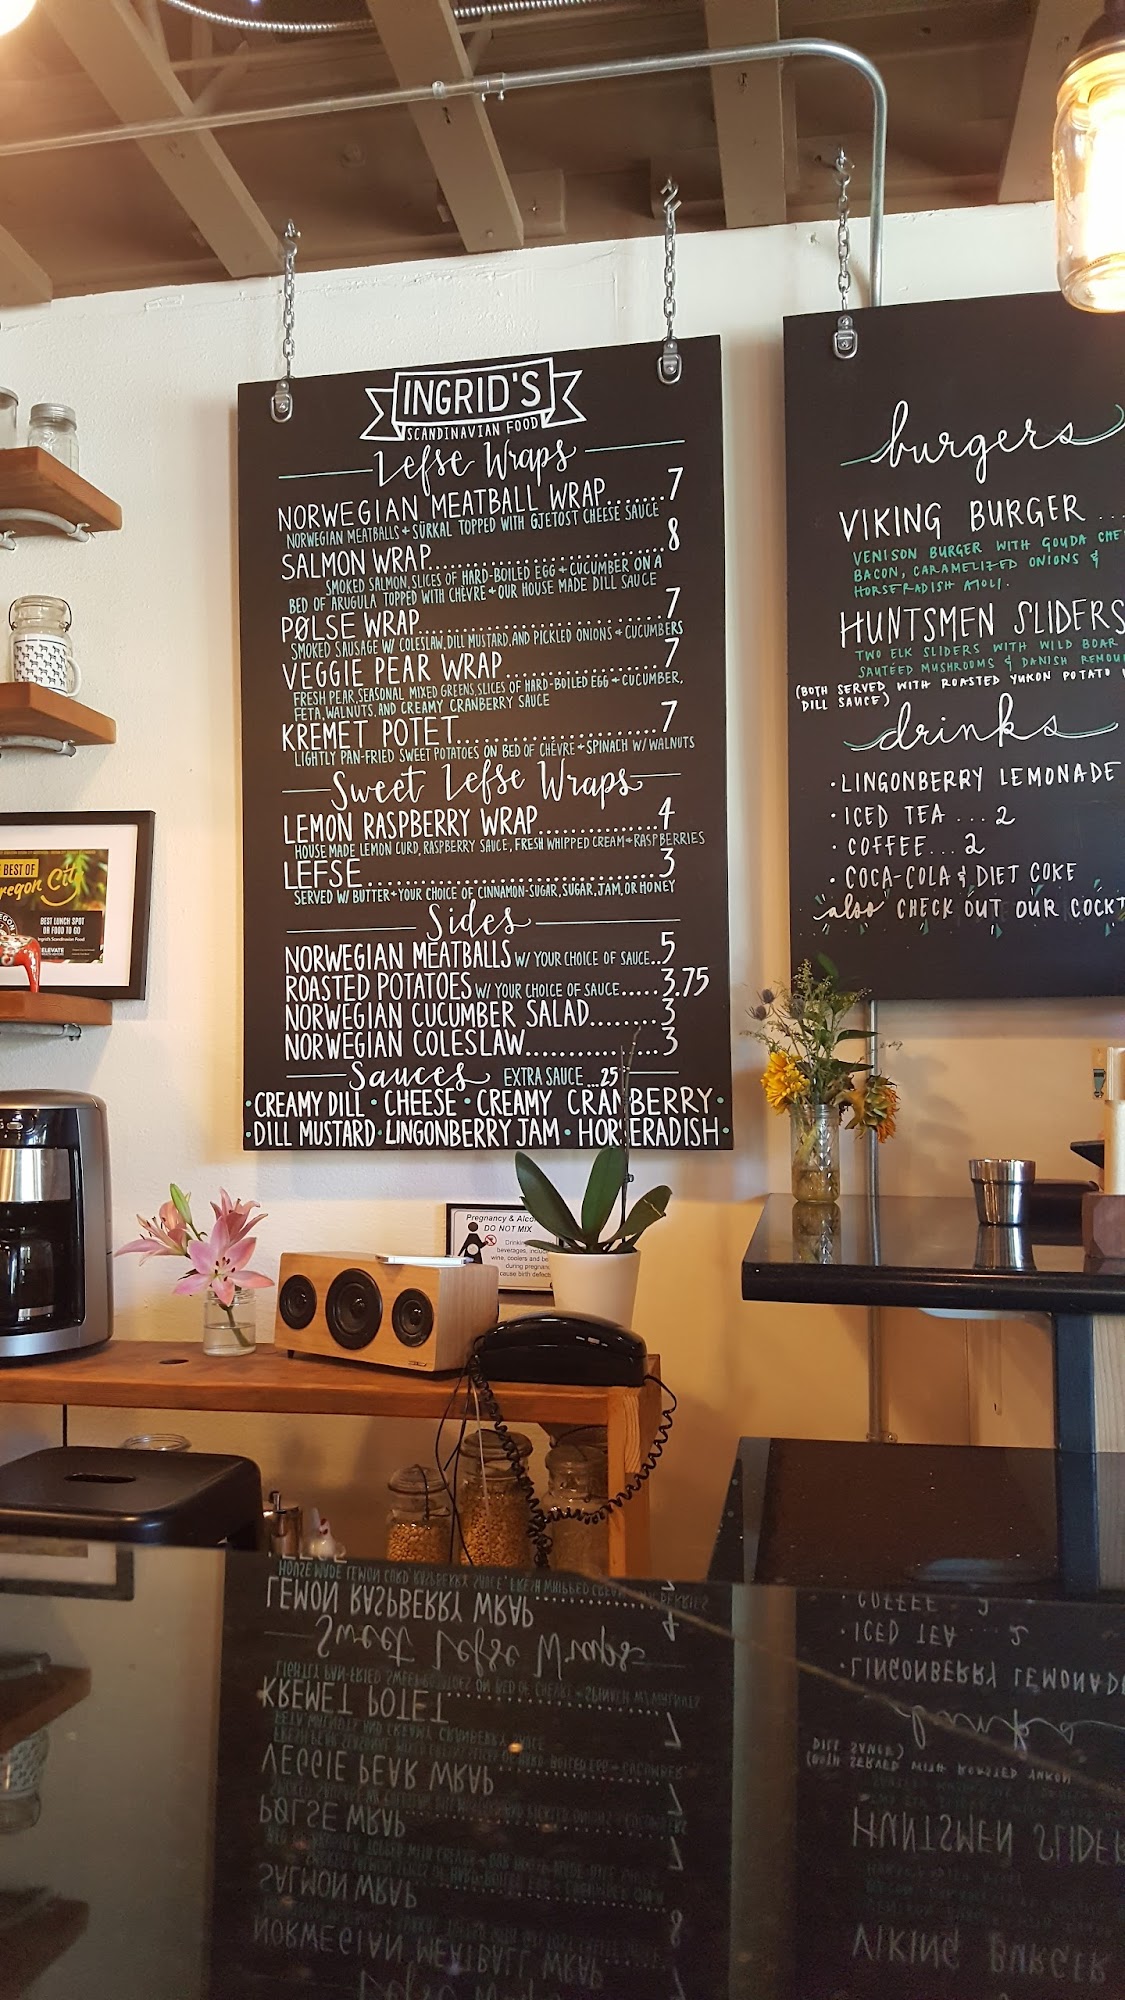 INGRID'S
SCANDINAVIAN FOOD
Lefse Wraps
NORWEGIAN MEATBALL WRAP.......7
NORWEGIAN MEATBALLS + SÜRKAL TOPPED WITH GJETOST CHEESE SAUCE
SALMON WRAP..............................8
SMOKED SALMON, SLICES OF HARD-BOILED EGG + CUCUMBER ON A
BED OF ARUGULA TOPPED WITH CHÈVRE + OUR HOUSE MADE DILL SAUCE
PØLSE WRAP..............................7
SMOKED SAUSAGE W/ COLESLAW, DILL MUSTARD, AND PICKLED ONIONS + CUCUMBERS
VEGGIE PEAR WRAP....................7
FRESH PEAR, SEASONAL MIXED GREENS, SLICES OF HARD-BOILED EGG + CUCUMBER,
FETA, WALNUTS, AND CREAMY CRANBERRY SAUCE
KREMET POTET.........................7
LIGHTLY PAN-FRIED SWEET POTATOES ON BED OF CHÈVRE + SPINACH W/ WALNUTS
Sweet Lefse Wraps
LEMON RASPBERRY WRAP...............4
HOUSE MADE LEMON CURD, RASPBERRY SAUCE, FRESH WHIPPED CREAM + RASPBERRIES
LEFSE.....................................3
SERVED W/ BUTTER + YOUR CHOICE OF CINNAMON-SUGAR, SUGAR, JAM, OR HONEY
Sides
NORWEGIAN MEATBALLS W/ YOUR CHOICE OF SAUCE..5
ROASTED POTATOES W/ YOUR CHOICE OF SAUCE.....3.75
NORWEGIAN CUCUMBER SALAD........3
NORWEGIAN COLESLAW.................3
Sauces EXTRA SAUCE...25
• CREAMY DILL • CHEESE • CREAMY CRANBERRY •
• DILL MUSTARD • LINGONBERRY JAM • HORSERADISH •
burgers
VIKING BURGER ...
VENISON BURGER WITH GOUDA CHE
BACON, CARAMELIZED ONIONS &
HORSERADISH AIOLI.
HUNTSMEN SLIDERS
TWO ELK SLIDERS WITH WILD BOAR
SAUTÉED MUSHROOMS & DANISH REMOU
(BOTH SERVED WITH ROASTED YUKON POTATO
DILL SAUCE)
drinks
• LINGONBERRY LEMONADE
• ICED TEA ... 2
• COFFEE... 2
• COCA-COLA & DIET COKE
also CHECK OUT OUR COCKT
BEST OF
Oregon City
BEST LUNCH SPOT
OR FOOD TO GO
Ingrid's Scandinavian Food
ELEVATE
Pregnancy & Alco
DO NOT MIX
Drinking
beverages, includ
wine, coolers and be
during pregnan
cause birth defects